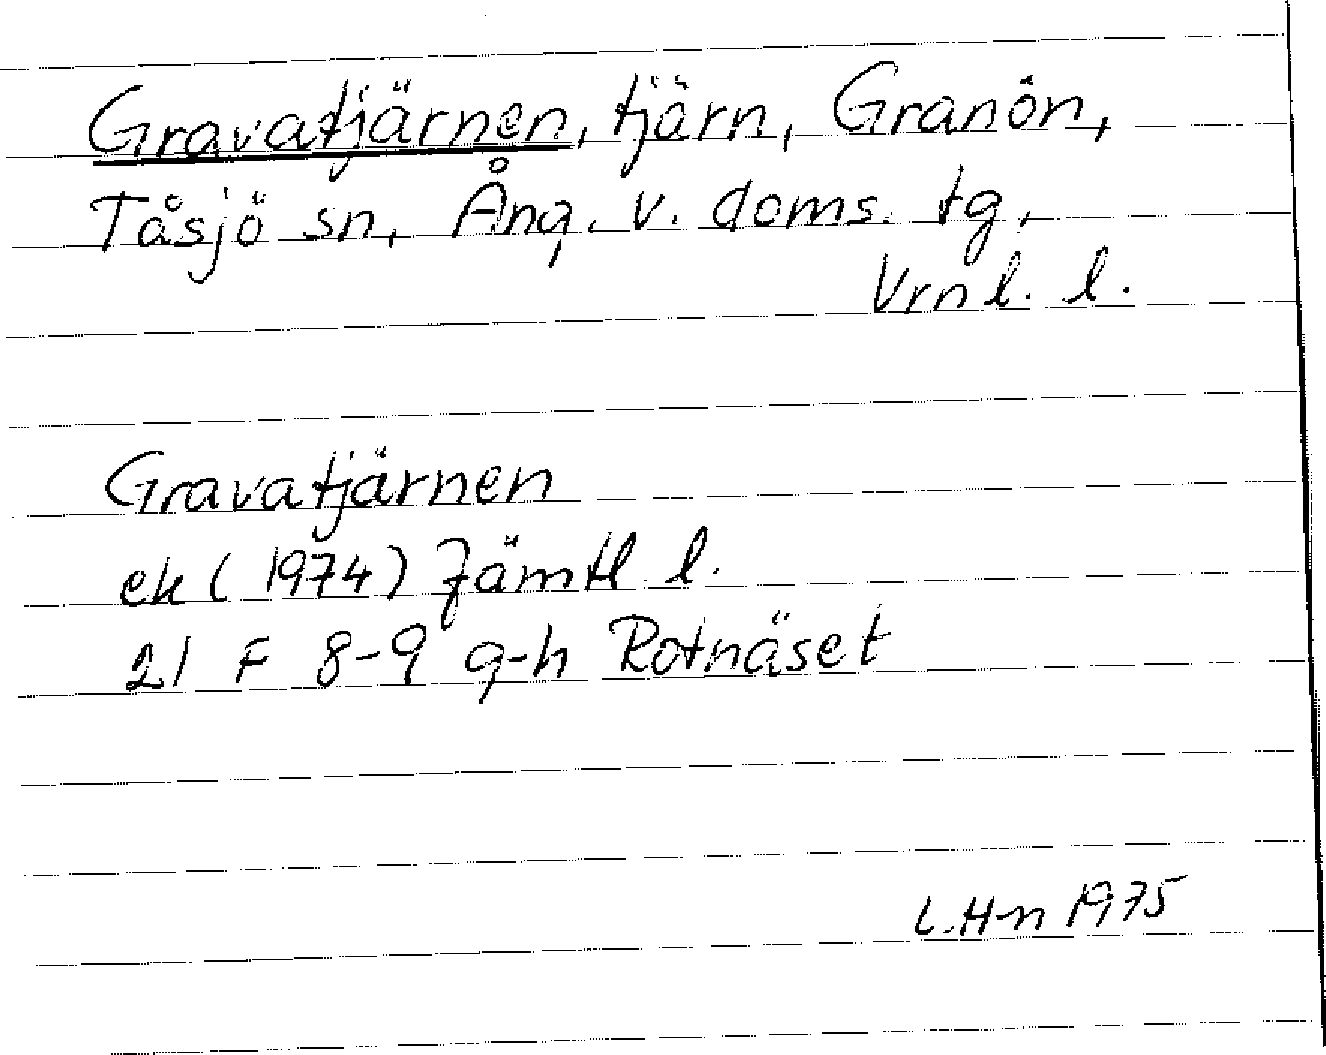 Gravatjärnen, tjärn, Granön,
Tåsjö sn, Ång. v. doms. tg,
Vrnl. l.
Gravatjärnen
ek (1974) Jämtl l.
21 F 8-9 g-h Rotnäset
L.H-n 1975